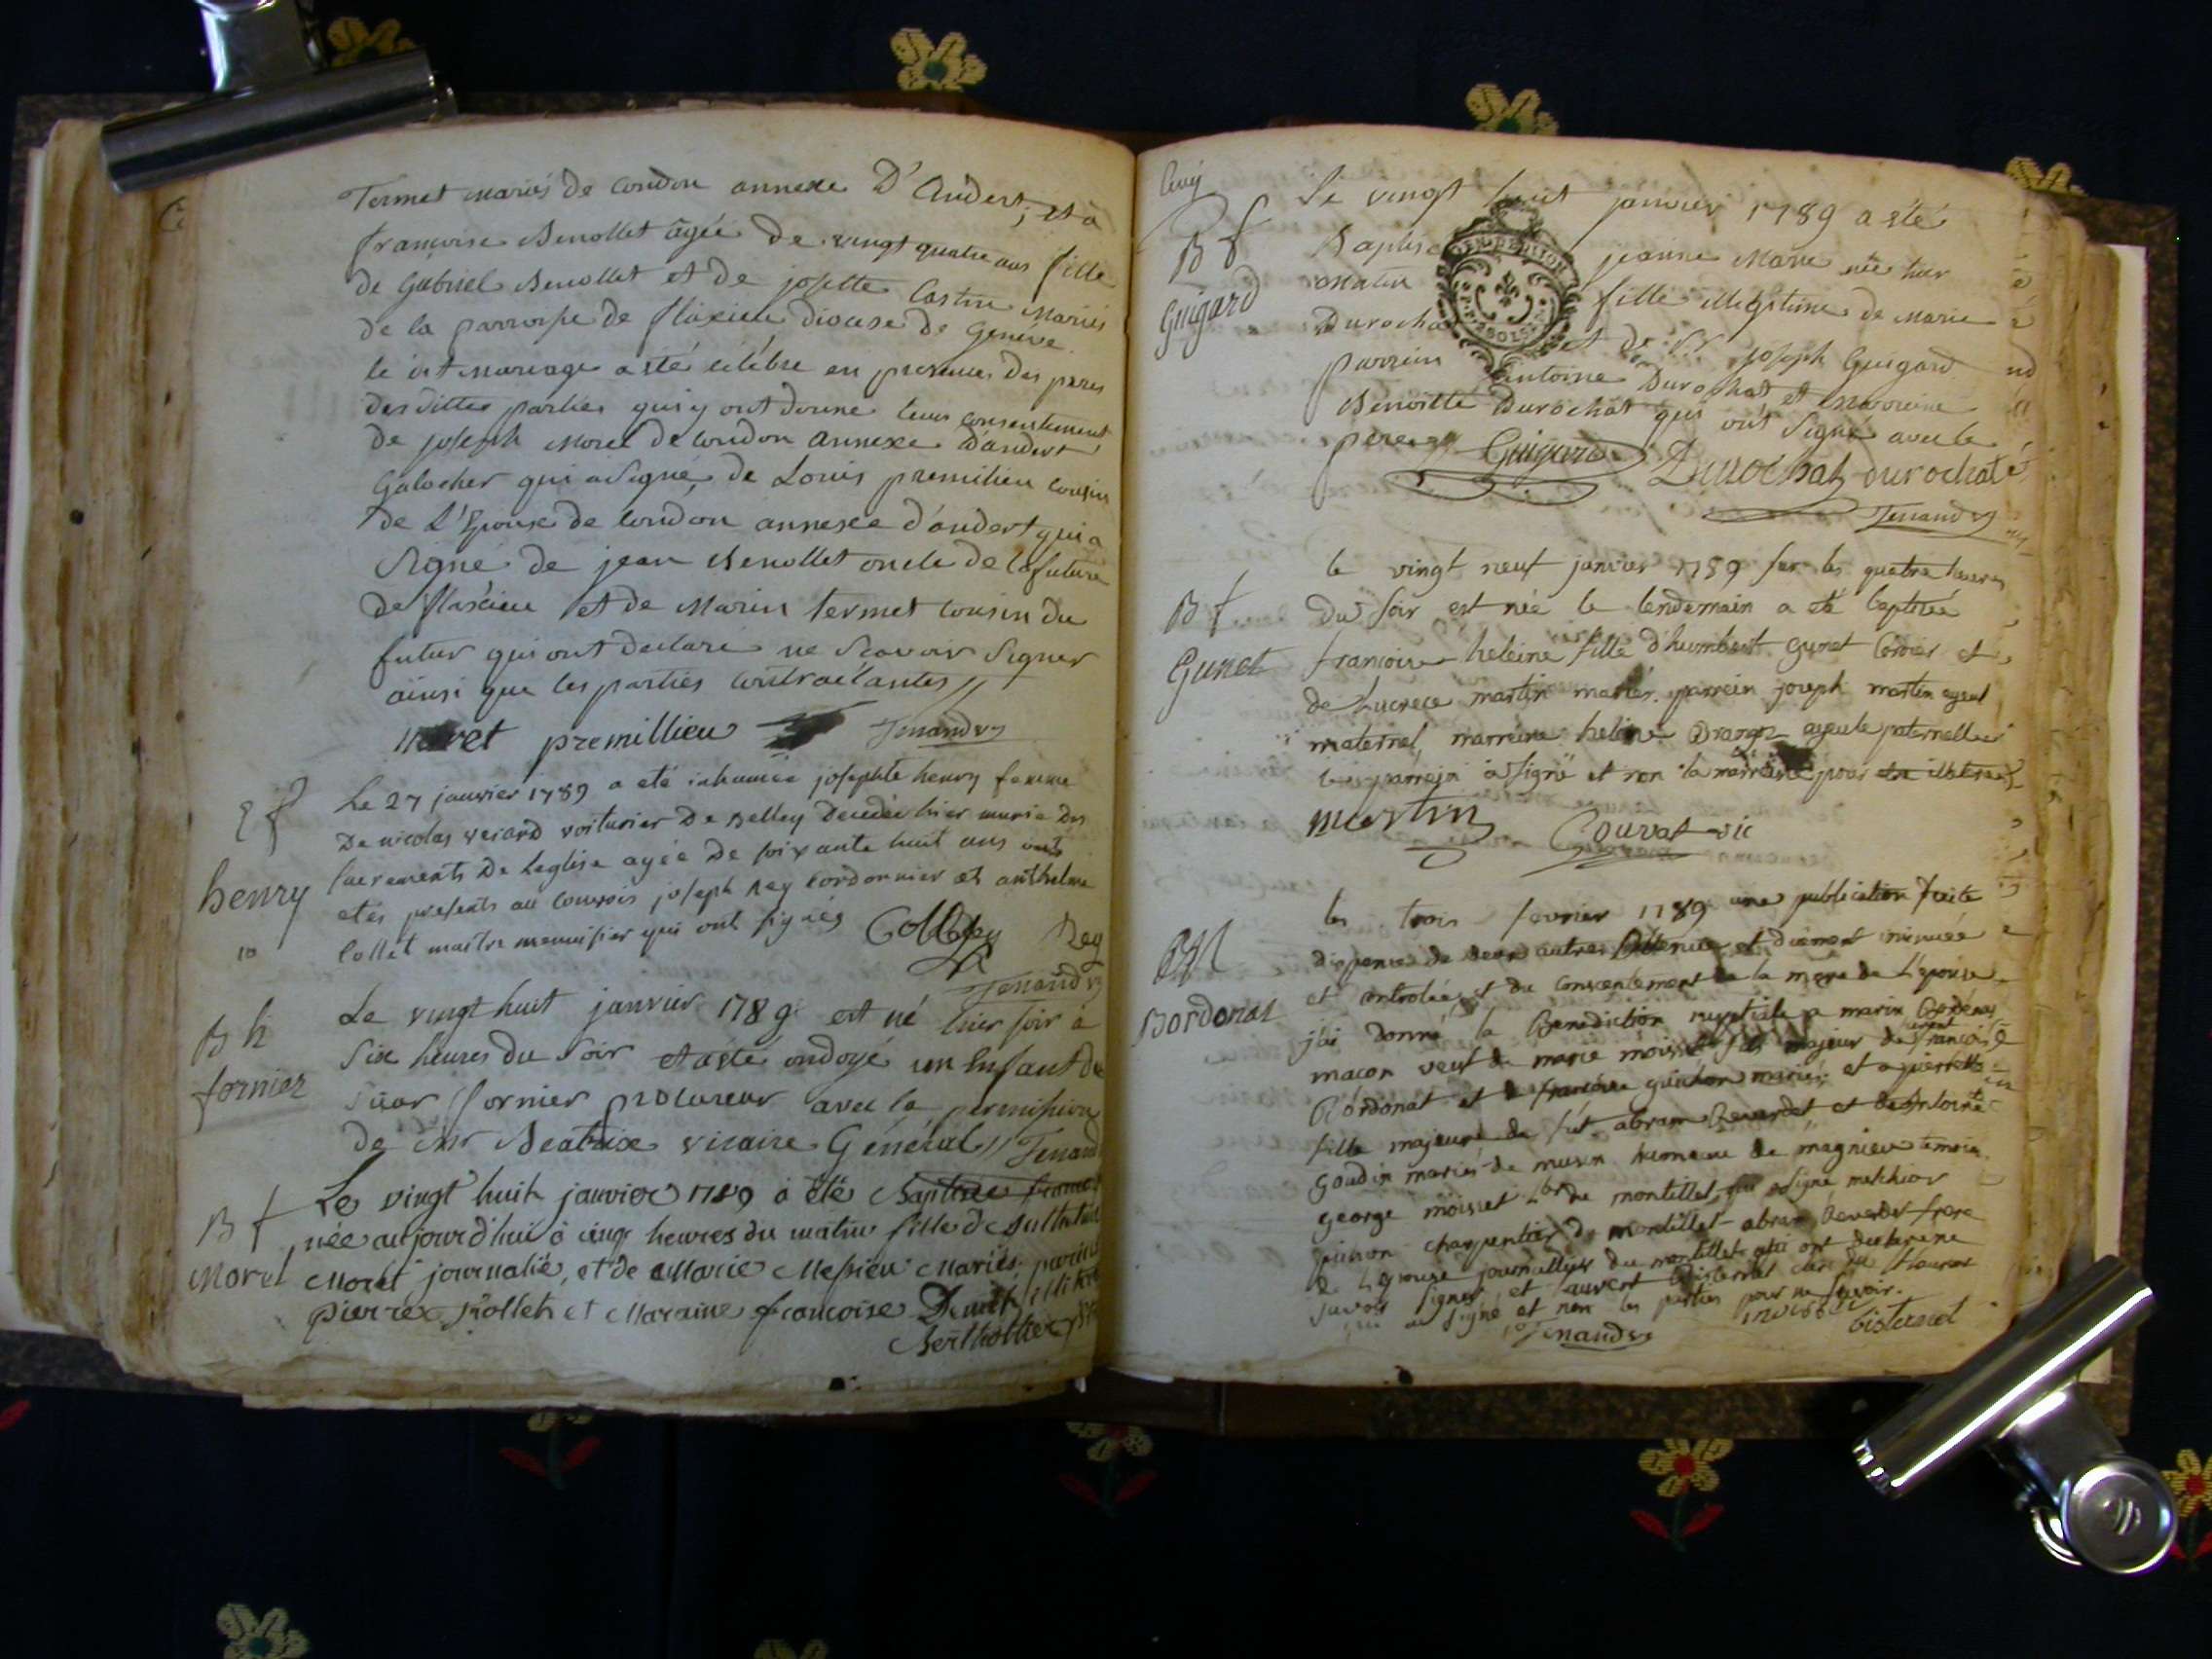 Termet mariés de condon annexe D'Andert, et à
francoise Benollet âgée de vingt quatre ans fille
de Gabriel Benollet et de josette Castin Mariés
de la parroisse de flaxieu diocese de Genéve.
le dit mariage a été célébre en presence des peres
des dittes parties qui y ont donne leur consentement
de joseph Morel de condon annexe d'andert
Galocher qui a signé, de Louis premilieu cousin
de L'Epouse de condon annexe d'andert qui a
Signé de jean Benollet oncle de la future
de flaxieu et de Marin termet cousin du
futur qui ont declaré ne Scavoir Signer
ainsi que les parties contractantes //
premillieu Tenand vic
Sf
henry
10
Le 27 janvier 1789 a eté inhumée josephte henry femme
De nicolas verard voiturier De Belley Decédée hier munie Des
sacrements De Leglise agée De soixante huit ans ont
etés presents au convois joseph Rey cordonnier et anthelme
Collet maitre menuisier qui ont signés Collet Rey
Tenand vic
B h
fornier
Le vingt huit janvier 1789 est né hier soir à
Six heures du soir et a été ondoyé un Enfant de
Sieur fornier procureur avec la permission
de Mr Beatrix vicaire Général // Tenand
B f
Morel
Le vingt huit janvier 1789 a été Baptisée
née aujourd'hui à cinq heures du matin fille de
Morel journalié, et de Marie Messieu Mariés. parein
pierre Rollet et Maraine francoise
Berthollier
B f
Guigard
Le vingt huit janvier 1789 a été
Baptisé jeanne Marie née hier
matin fille illegitime de Marie
Durocha et de Sr joseph Guigard
parrein Antoine Durochat et marreine
Benoitte Durochat qui ont Signé avec le
pere Guigard Durochat durochat
Tenand vic
B f
Gunet
le vingt neuf janvier 1789 sur les quatre heures
du soir est née le lendemain a été baptisée
francoise heleine fille d'humbert gunet Cordier et
de Lucrece martin mariés. parrein joseph martin ayeul
maternel, marreine helene ayeule paternelle
le parrein a signé et non la marreine pour illiterée
martin Couvat vic
M
Bordonat
les trois fevrier 1789 une publication faite
dispense de deux autres obtenue et duement insinuée
et controlée, et du consentement de la mere de l'epouse
j'ai donné la Benediction nuptiale a marin Bordonat
macon veuf de marie moisset fils majeur de francois
Bordonat et de francoise guinton mariés; et a pierrette
fille majeure de fut abram Reverdet et de Antoinette
goudin mariés de musin hameau de magnieu temoins
george moisset de montillet, qui a signé melchior
charpentier de montillet abram Reverdet frere
de L'epouse journallier du montillet qui ont declaré ne
savoir signer, et
a signé et non les parties pour ne savoir.
Tenand vic bisternet